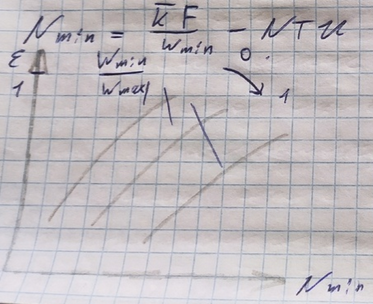 N min = K̅ F / W min - NTU
ε
1
W min / W max
0
1
N min